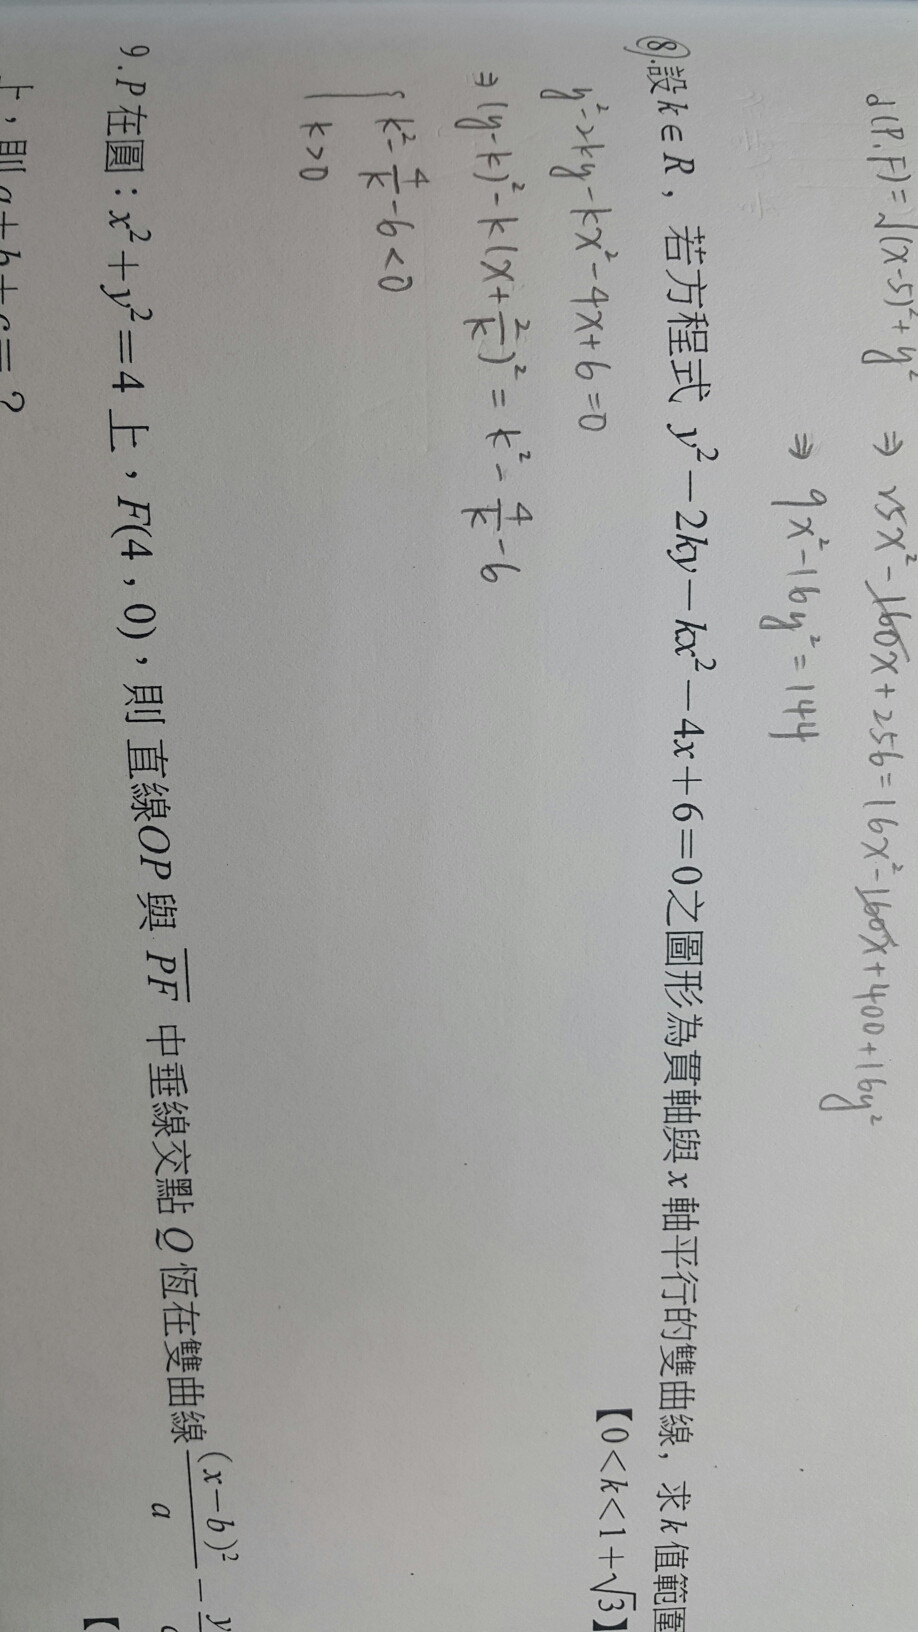 d(P,F)=√(x-5)²+y² ⇒ 25x²-160x+256=16x²-160x+400+16y²
⇒ 9x²-16y²=144
⑧.設k∈R，若方程式 y²-2ky-kx²-4x+6=0之圖形為貫軸與x軸平行的雙曲線，求k值範圍
【0<k<1+√3】
y²-2ky-kx²-4x+6=0
⇒(y-k)²-k(x+2/k)²=k²-4/k-6
{k²-4/k-6<0
k>0
9.P在圓：x²+y²=4上，F(4,0)，則直線OP與PF中垂線交點Q恆在雙曲線(x-b)²/a-y
上，則a+b+c=？
【